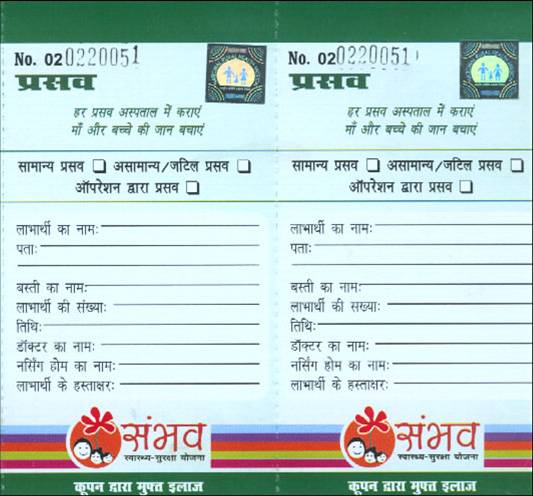 No. 020220051
प्रसव
हर प्रसव अस्पताल में कराएं
माँ और बच्चे की जान बचाएं
सामान्य प्रसव असामान्य/जटिल प्रसव
ऑपरेशन द्वारा प्रसव
लाभार्थी का नाम:
पता:
बस्ती का नाम:
लाभार्थी की संख्या:
तिथि:
डॉक्टर का नाम:
नर्सिंग होम का नाम:
लाभार्थी के हस्ताक्षर:
संभव
स्वास्थ्य-सुरक्षा योजना
कूपन द्वारा मुफ्त इलाज
No. 020220051
प्रसव
हर प्रसव अस्पताल में कराएं
माँ और बच्चे की जान बचाएं
सामान्य प्रसव असामान्य/जटिल प्रसव
ऑपरेशन द्वारा प्रसव
लाभार्थी का नाम:
पता:
बस्ती का नाम:
लाभार्थी की सख्या:
तिथि:
डॉक्टर का नाम:
नर्सिंग होम का नाम:
लाभार्थी के हस्ताक्षर:
संभव
स्वास्थ्य-सुरक्षा योजना
कूपन द्वारा मुफ्त इलाज